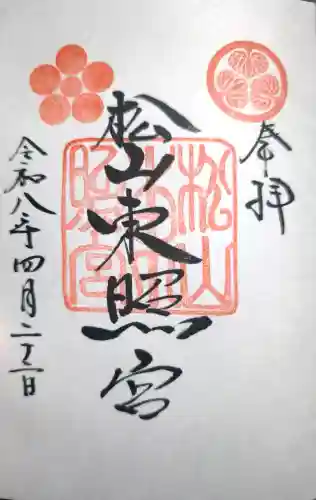 奉拝
松山東照宮
松山東照宮
令和八年四月二十一日